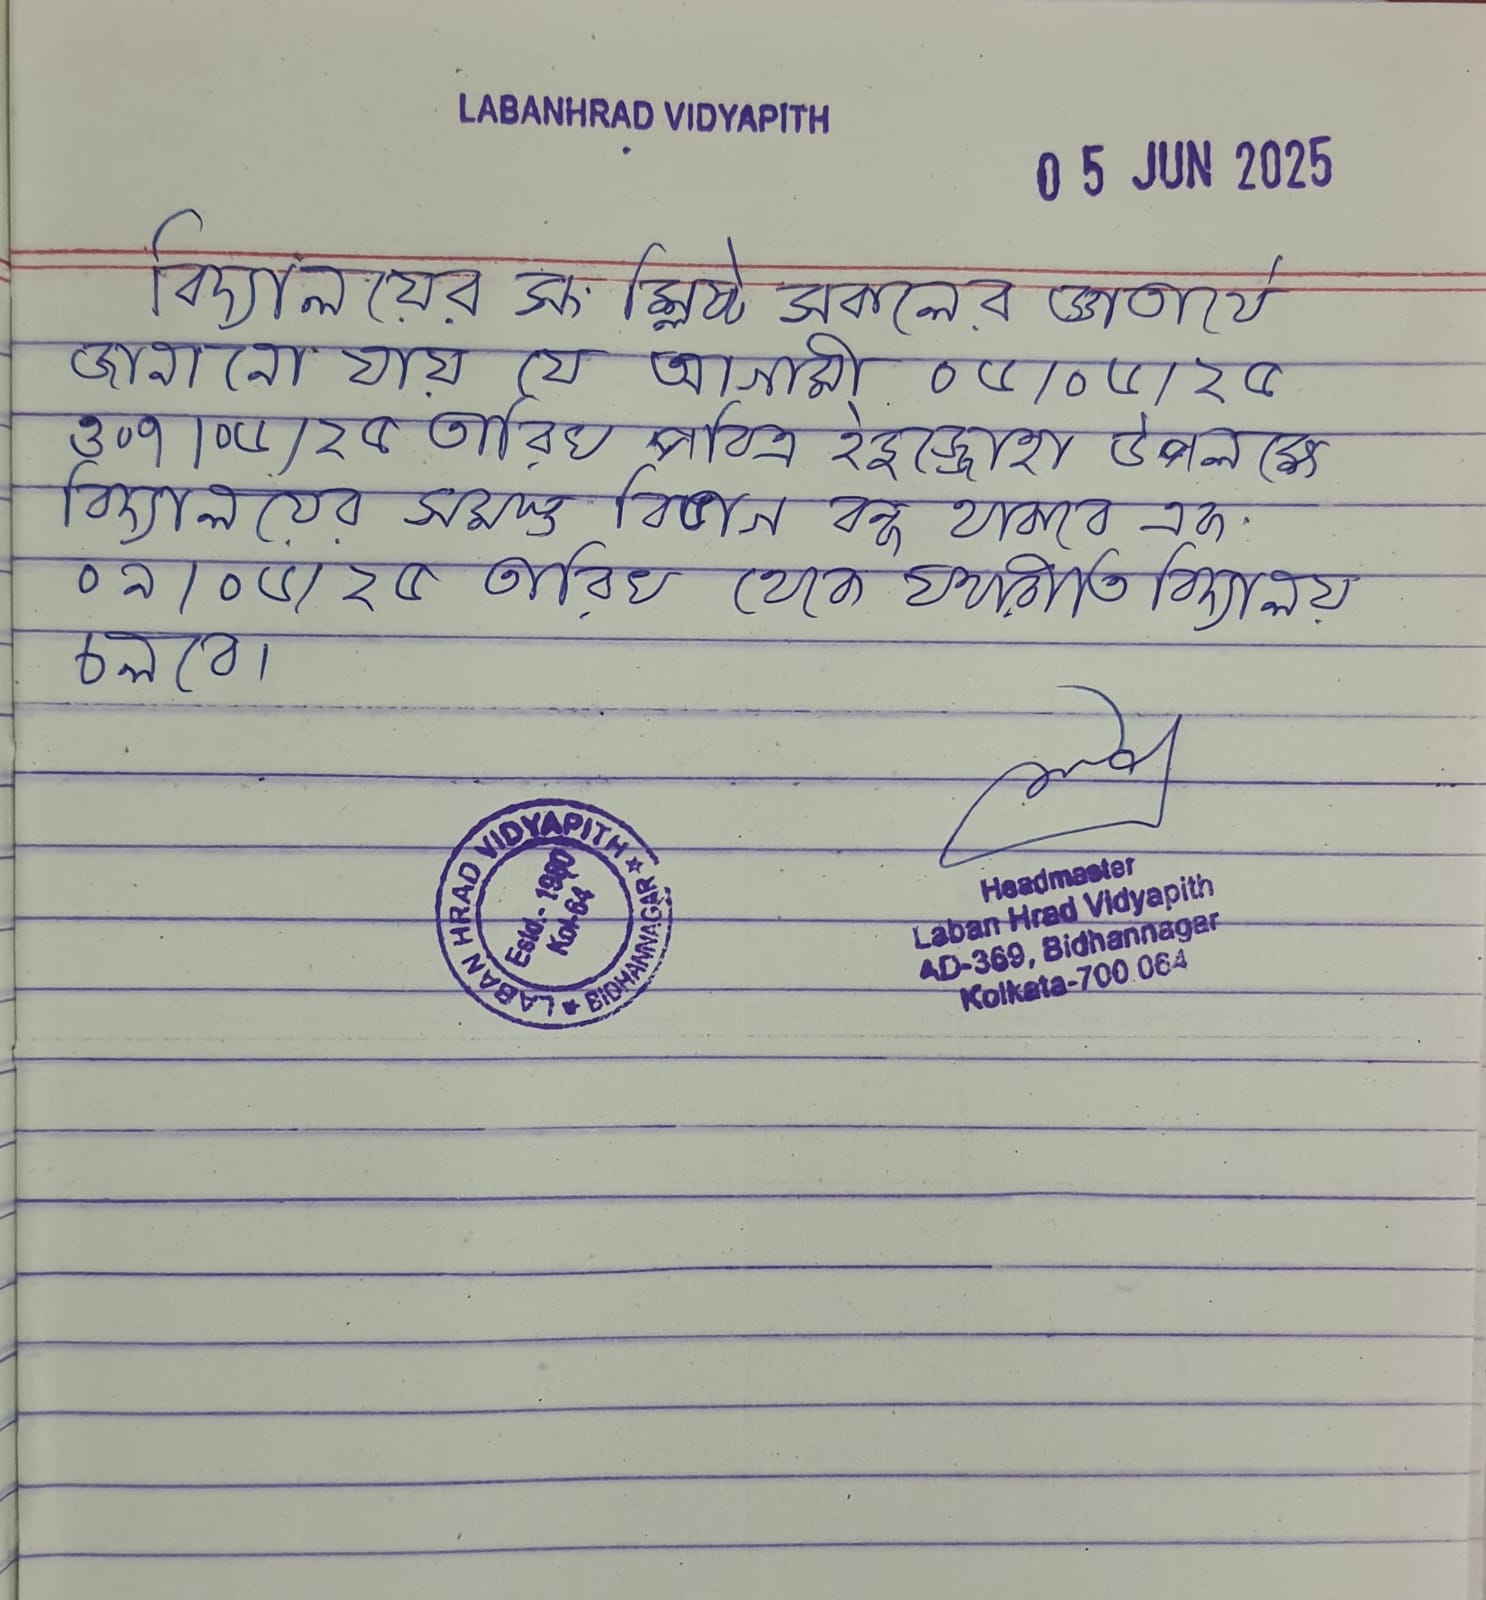 LABANHRAD VIDYAPITH
05 JUN 2025
বিদ্যালয়ের সংশ্লিষ্ট সকলের জ্ঞাতার্থে
জানানো যায় যে আগামী ০৬/০৬/২৫
ও ০৭/০৬/২৫ তারিখ পবিত্র ইদুজ্জোহা উপলক্ষে
বিদ্যালয়ের সমস্ত বিভাগ বন্ধ থাকবে এবং
০৯/০৬/২৫ তারিখ থেকে যথারীতি বিদ্যালয়
চলবে।
LABAN HRAD VIDYAPITH ★ BIDHANNAGAR ★
Estd.- 1980
Kol-64
Headmaster
Laban Hrad Vidyapith
AD-369, Bidhannagar
Kolkata-700 064